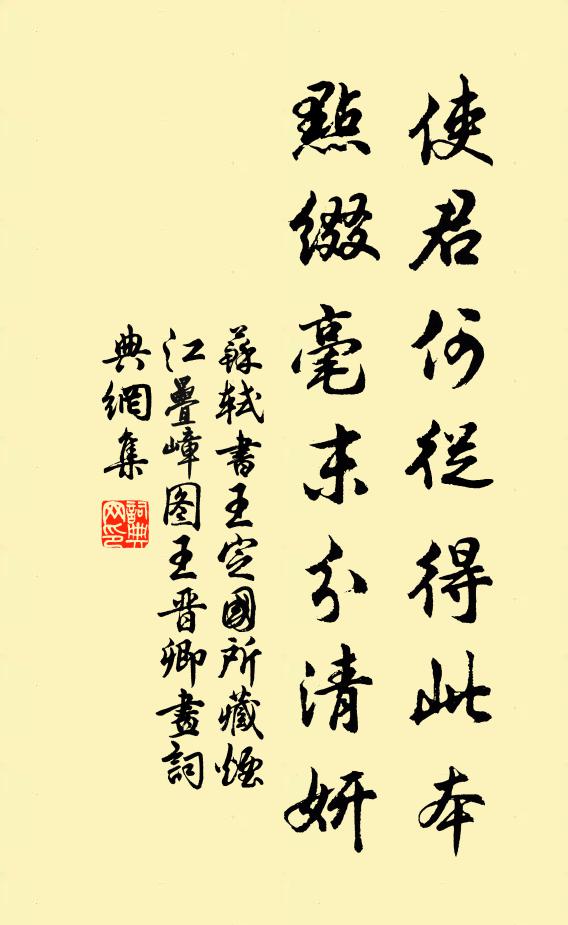 使君何從得此本
點綴毫末分清妍
蘇軾書王定國所藏煙
江疊嶂图王晋卿畫詞
典網集
詞典网印